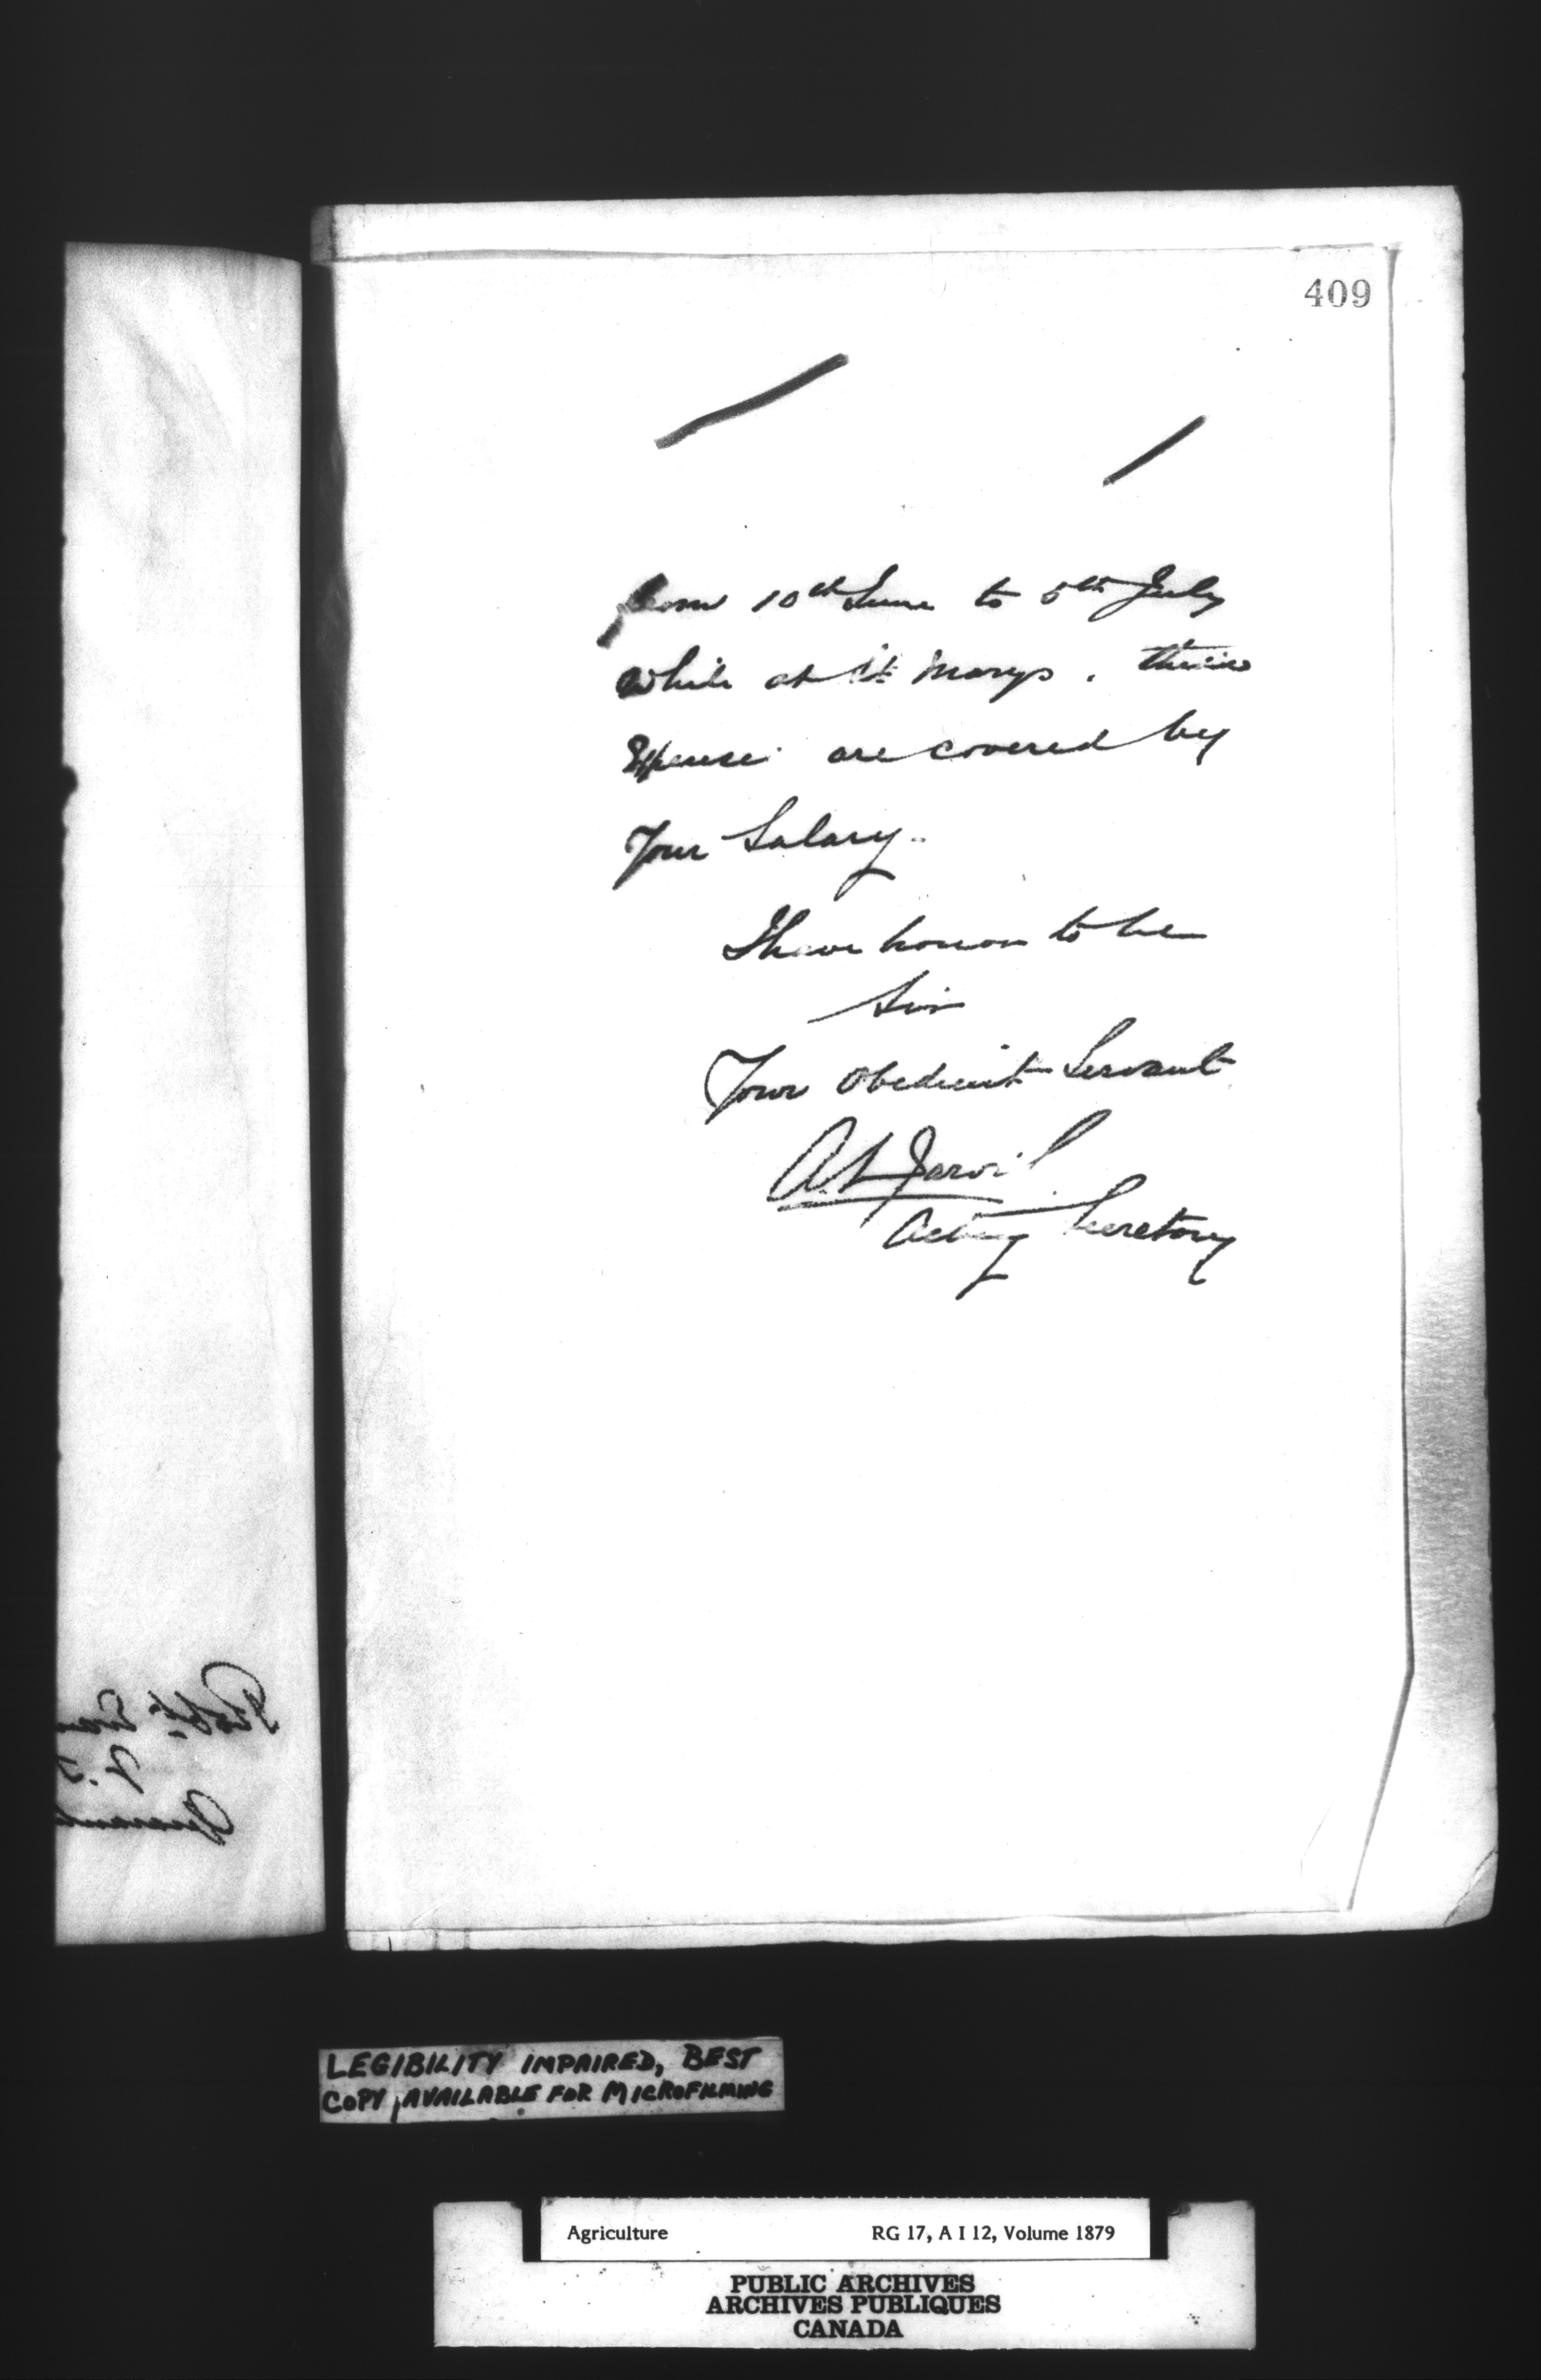 409
from 10th June to 5th July
while at St Marys. these
Expenses are covered by
Your Salary.
I have honor to be
Sir
Your Obedient Servant
A L Jarvis
Acting Secretary
LEGIBILITY IMPAIRED, BEST
COPY AVAILABLE FOR MICROFILMING
Agriculture RG 17, A I 12, Volume 1879
PUBLIC ARCHIVES
ARCHIVES PUBLIQUES
CANADA